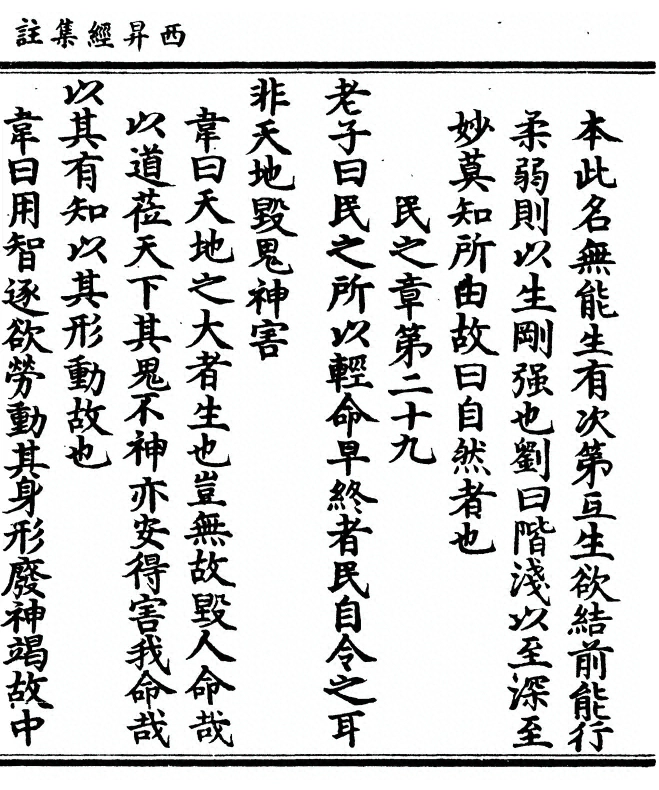 西昇經集註
本此名無能生有次第互生欲結前能行
柔弱則以生剛强也劉曰階淺以至深至
妙莫知所由故曰自然者也
民之章第二十九
老子曰民之所以輕命早終者民自令之耳
非天地毀鬼神害
韋曰天地之大者生也豈無故毀人命哉
以道莅天下其鬼不神亦安得害我命哉
以其有知以其形動故也
韋曰用智逐欲勞動其身形廢神竭故中